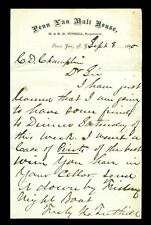 Penn Yan Malt House,
Penn Yan, N.Y. Sept 8
C.D. Champlin
Dr Sir
I have just
learned that I am going
to have some friends
to Dinner Saturday of
this week. I want a
Case of Pints of the best
Wine You have in
Your Cellar, send
it down by Friday
Night Boat